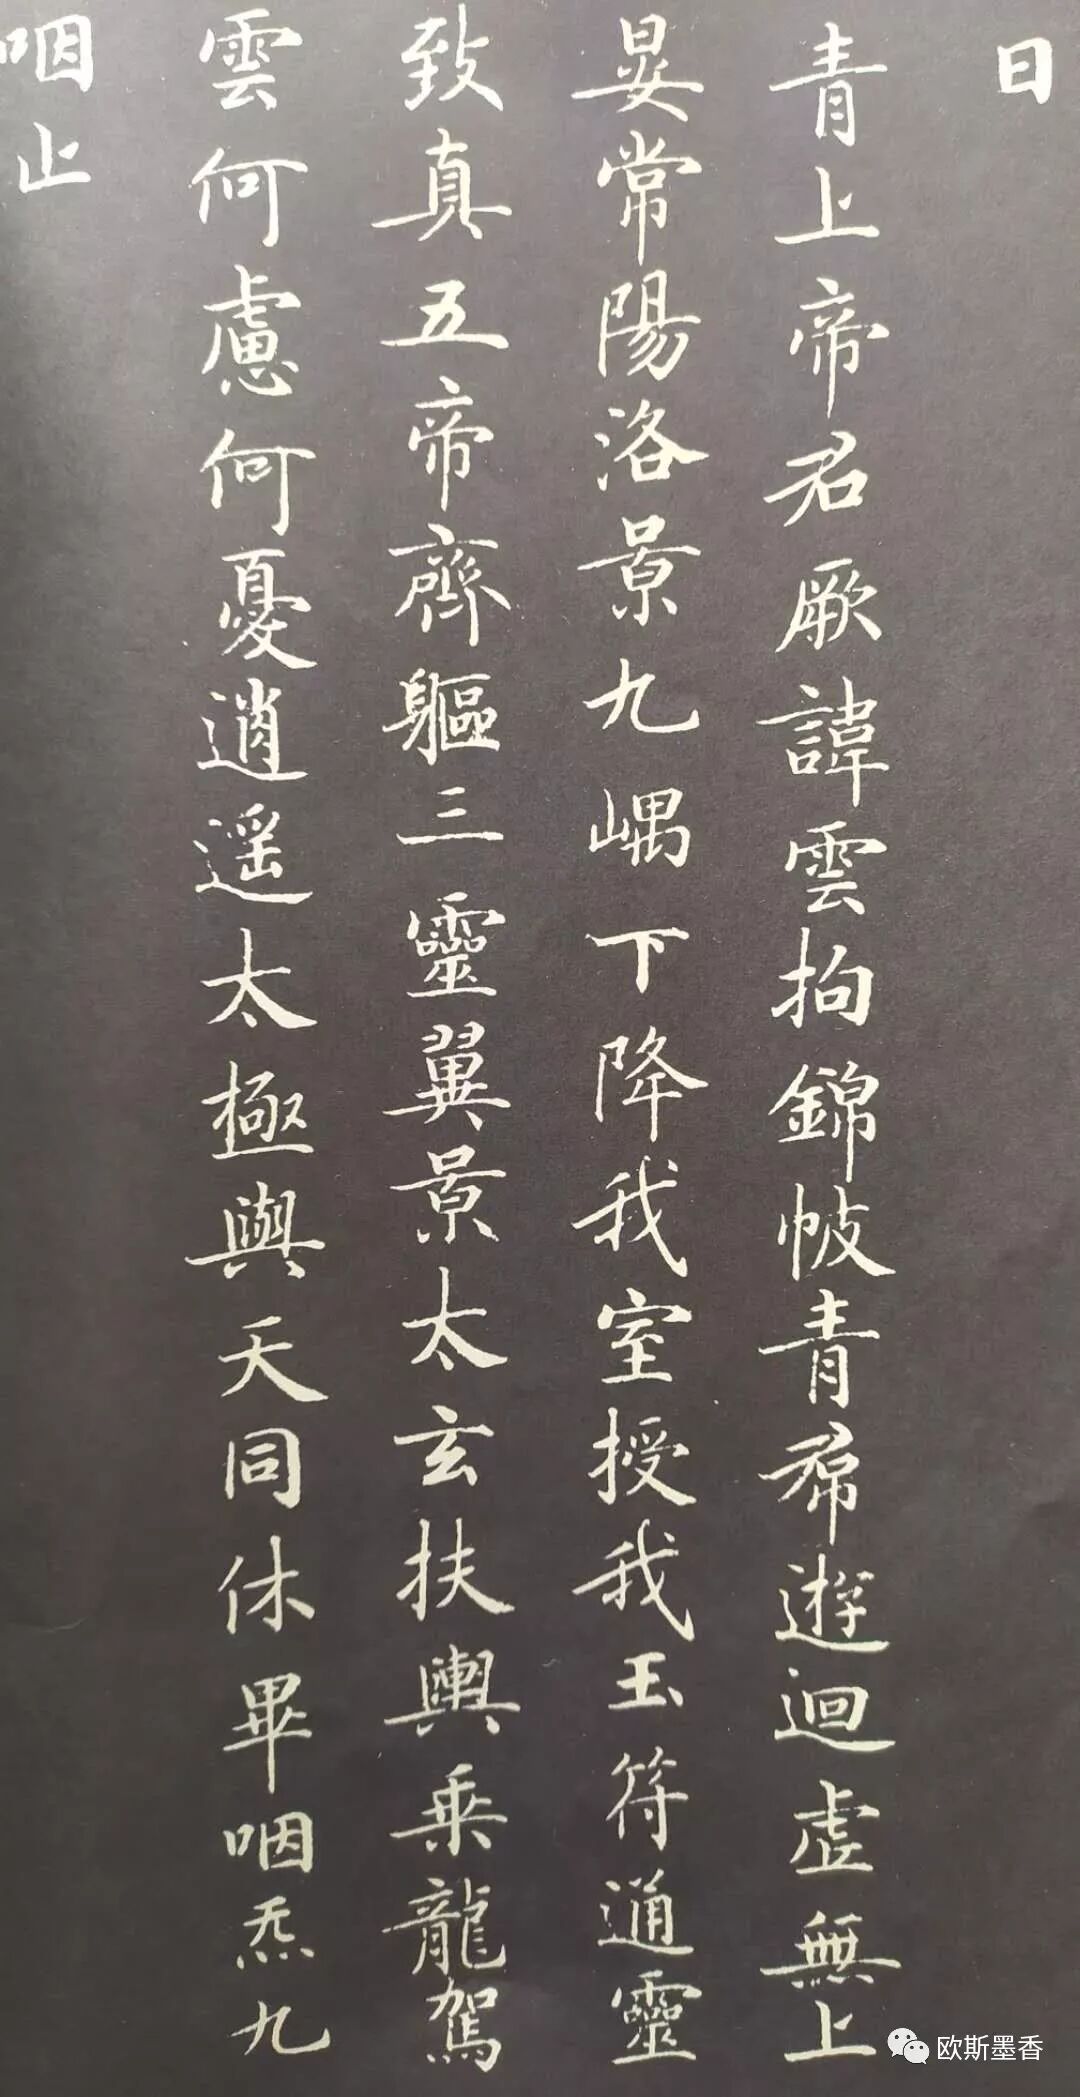 日
青上帝君厥諱雲拘錦帔青帬遊迴虛無上
晏常陽洛景九嵎下降我室授我玉符通靈
致真五帝齊軀三靈翼景太玄扶輿乘龍駕
雲何慮何憂逍遥太極與天同休畢咽炁九
咽止
欧斯墨香